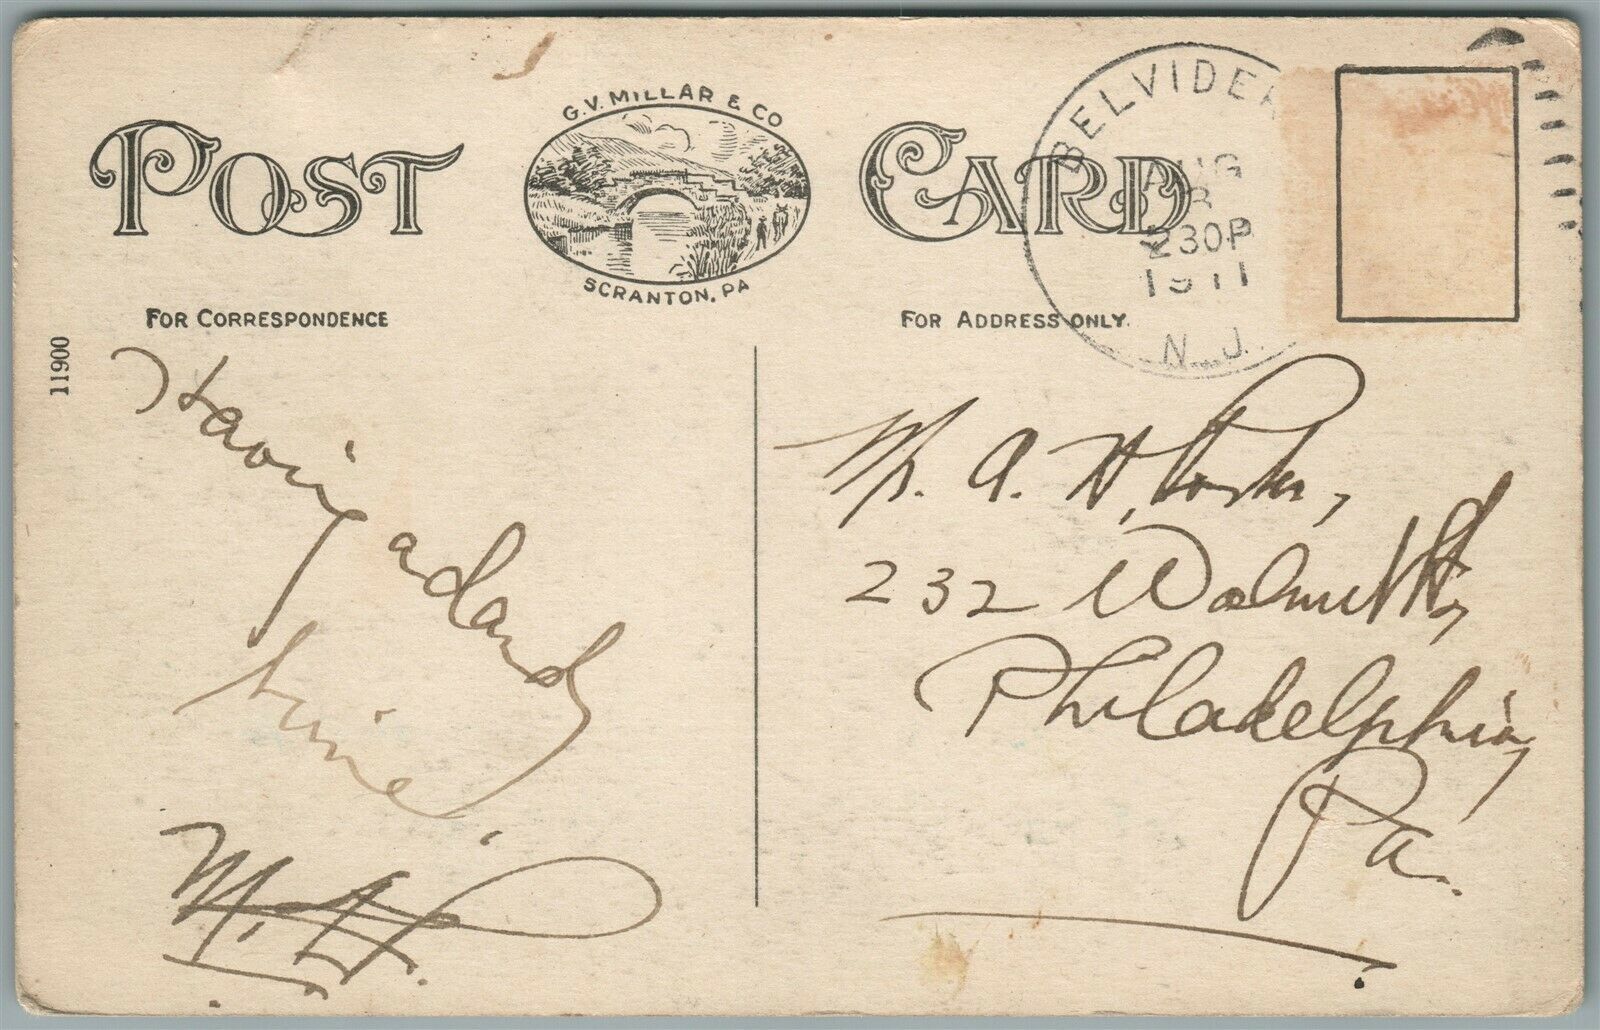 POST CARD
G.V. MILLAR & CO
SCRANTON, PA
FOR CORRESPONDENCE
FOR ADDRESS ONLY.
11900
BELVIDE
AUG
230P
1911
N.J.
Having
a dandy
time.
M. H.
Mr. A. H.
232 Walnut St,
Philadelphia,
Pa.